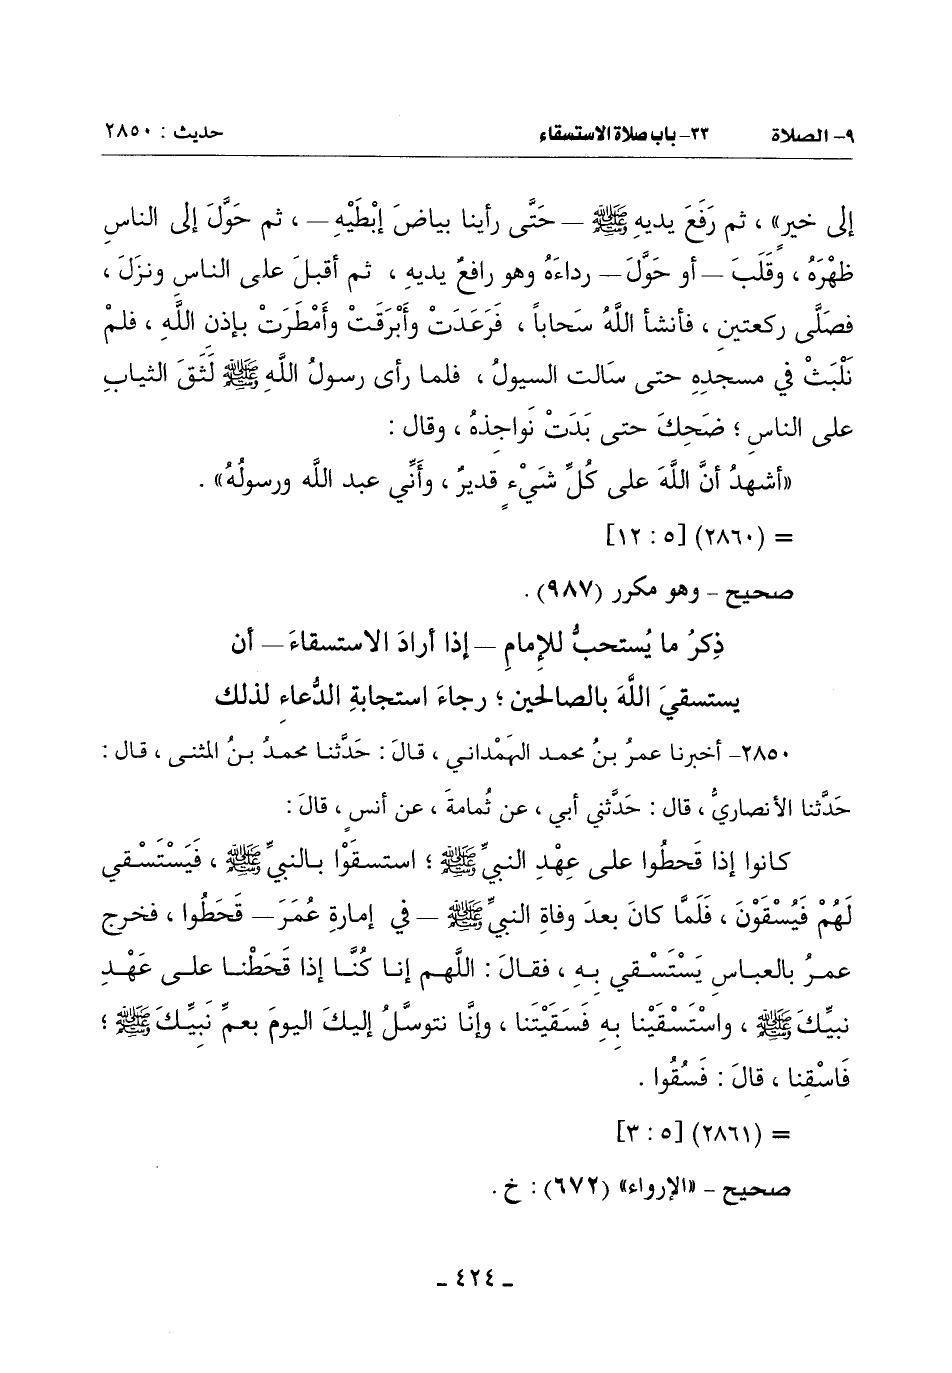 ٩- الصلاة ٣٣- باب صلاة الاستسقاء حديث : ٢٨٥٠
إلى خيرٍ» ، ثم رَفَعَ يديهِ ﷺ – حَتَّى رأينا بياضَ إِبْطَيْهِ – ، ثم حَوَّلَ إلى الناسِ
ظهْرَهُ ، وقَلَبَ – أو حَوَّلَ – رداءَهُ وهو رافعٌ يديهِ ، ثم أقبلَ على الناسِ ونزَلَ ،
فصَلَّى ركعتينِ ، فأنشأ اللَّهُ سَحاباً ، فَرَعَدَتْ وأَبْرَقَتْ وأَمْطَرَتْ بإذنِ اللَّهِ ، فلمْ
نَلْبَثْ في مسجدِهِ حتى سَالت السيولُ ، فلما رأى رسولُ اللَّهِ ﷺ لَثَقَ الثيابِ
على الناسِ ؛ ضَحِكَ حتى بَدَتْ نَواجذهُ ، وقال :
«أشهدُ أنَّ اللَّهَ على كُلِّ شَيْءٍ قديرٌ ، وأَنِّي عبد اللَّه ورسولُهُ» .
= (٢٨٦٠) [٥ : ١٢]
صحيح - وهو مكرر (٩٨٧) .
ذِكرُ ما يُستحبُّ للإمامِ – إذا أرادَ الاستسقاءَ – أن
يستسقيَ اللَّهَ بالصالحين ؛ رجاءَ استجابةِ الدُّعاءِ لذلك
٢٨٥٠- أخبرنا عمرُ بنُ محمد الهَمْداني ، قالَ : حَدَّثنا محمدُ بنُ المثنى ، قال :
حَدَّثنا الأنصاريُّ ، قال : حَدَّثني أبي ، عن ثُمامةَ ، عن أنسٍ ، قالَ :
كانوا إذا قَحطُوا على عِهْدِ النبيِّ ﷺ ؛ استسقَوْا بالنبيِّ ﷺ ، فَيَسْتَسْقي
لَهُمْ فَيُسْقَوْنَ ، فَلَمَّا كانَ بعدَ وفاةِ النبيِّ ﷺ – في إمارةِ عُمَرَ – قَحَطُوا ، فخرج
عمرُ بالعباسِ يَسْتَسْقي بهِ ، فقالَ : اللَّهم إنا كُنَّا إذا قَحَطْنا على عَهْدِ
نبيِّكَ ﷺ ، واسْتَسْقَيْنا بِهِ فَسَقَيْتَنا ، وإنَّا نتوسَّلُ إليكَ اليومَ بعمِّ نَبِيِّكَ ﷺ ؛
فَاسْقِنا ، قالَ : فَسُقُوا .
= (٢٨٦١) [٥ : ٣]
صحيح - «الإرواء» (٦٧٢) : خ .
ـ ٤٢٤ ـ